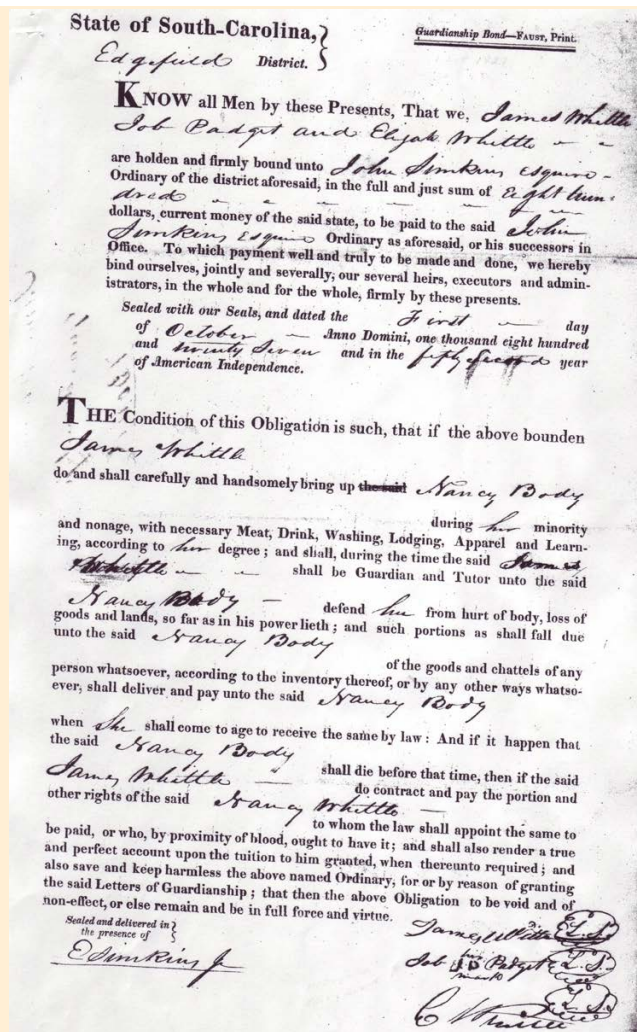 State of South-Carolina,
Guardianship Bond—FAUST, Print.
Edgefield District.
KNOW all Men by these Presents, That we, James Whittle
Job Padget and Elijah Whittle
are holden and firmly bound unto John Simkins esquire
Ordinary of the district aforesaid, in the full and just sum of Eight hun-
dred
dollars, current money of the said state, to be paid to the said John
Simkins Esquire Ordinary as aforesaid, or his successors in
Office. To which payment well and truly to be made and done, we hereby
bind ourselves, jointly and severally, our several heirs, executors and admin-
istrators, in the whole and for the whole, firmly by these presents.
Sealed with our Seals, and dated the First day
of October Anno Domini, one thousand eight hundred
and twenty Seven and in the fifty Second year
of American Independence.
THE Condition of this Obligation is such, that if the above bounden
James Whittle
do and shall carefully and handsomely bring up the said Nancy Body
during her minority
and nonage, with necessary Meat, Drink, Washing, Lodging, Apparel and Learn-
ing, according to her degree; and shall, during the time the said James
Whittle shall be Guardian and Tutor unto the said
Nancy Body defend her from hurt of body, loss of
goods and lands, so far as in his power lieth; and such portions as shall fall due
unto the said Nancy Body
of the goods and chattels of any
person whatsoever, according to the inventory thereof, or by any other ways whatso-
ever, shall deliver and pay unto the said Nancy Body
when She shall come to age to receive the same by law: And if it happen that
the said Nancy Body
shall die before that time, then if the said
James Whittle do contract and pay the portion and
other rights of the said Nancy Whittle
to whom the law shall appoint the same to
be paid, or who, by proximity of blood, ought to have it; and shall also render a true
and perfect account upon the tuition to him granted, when thereunto required; and
also save and keep harmless the above named Ordinary, for or by reason of granting
the said Letters of Guardianship; that then the above Obligation to be void and of
non-effect, or else remain and be in full force and virtue.
Sealed and delivered in
the presence of
E Simkins Jr
James Whittle L.S.
his
Job JD Padget L.S.
mark
L.S.
E Whittle